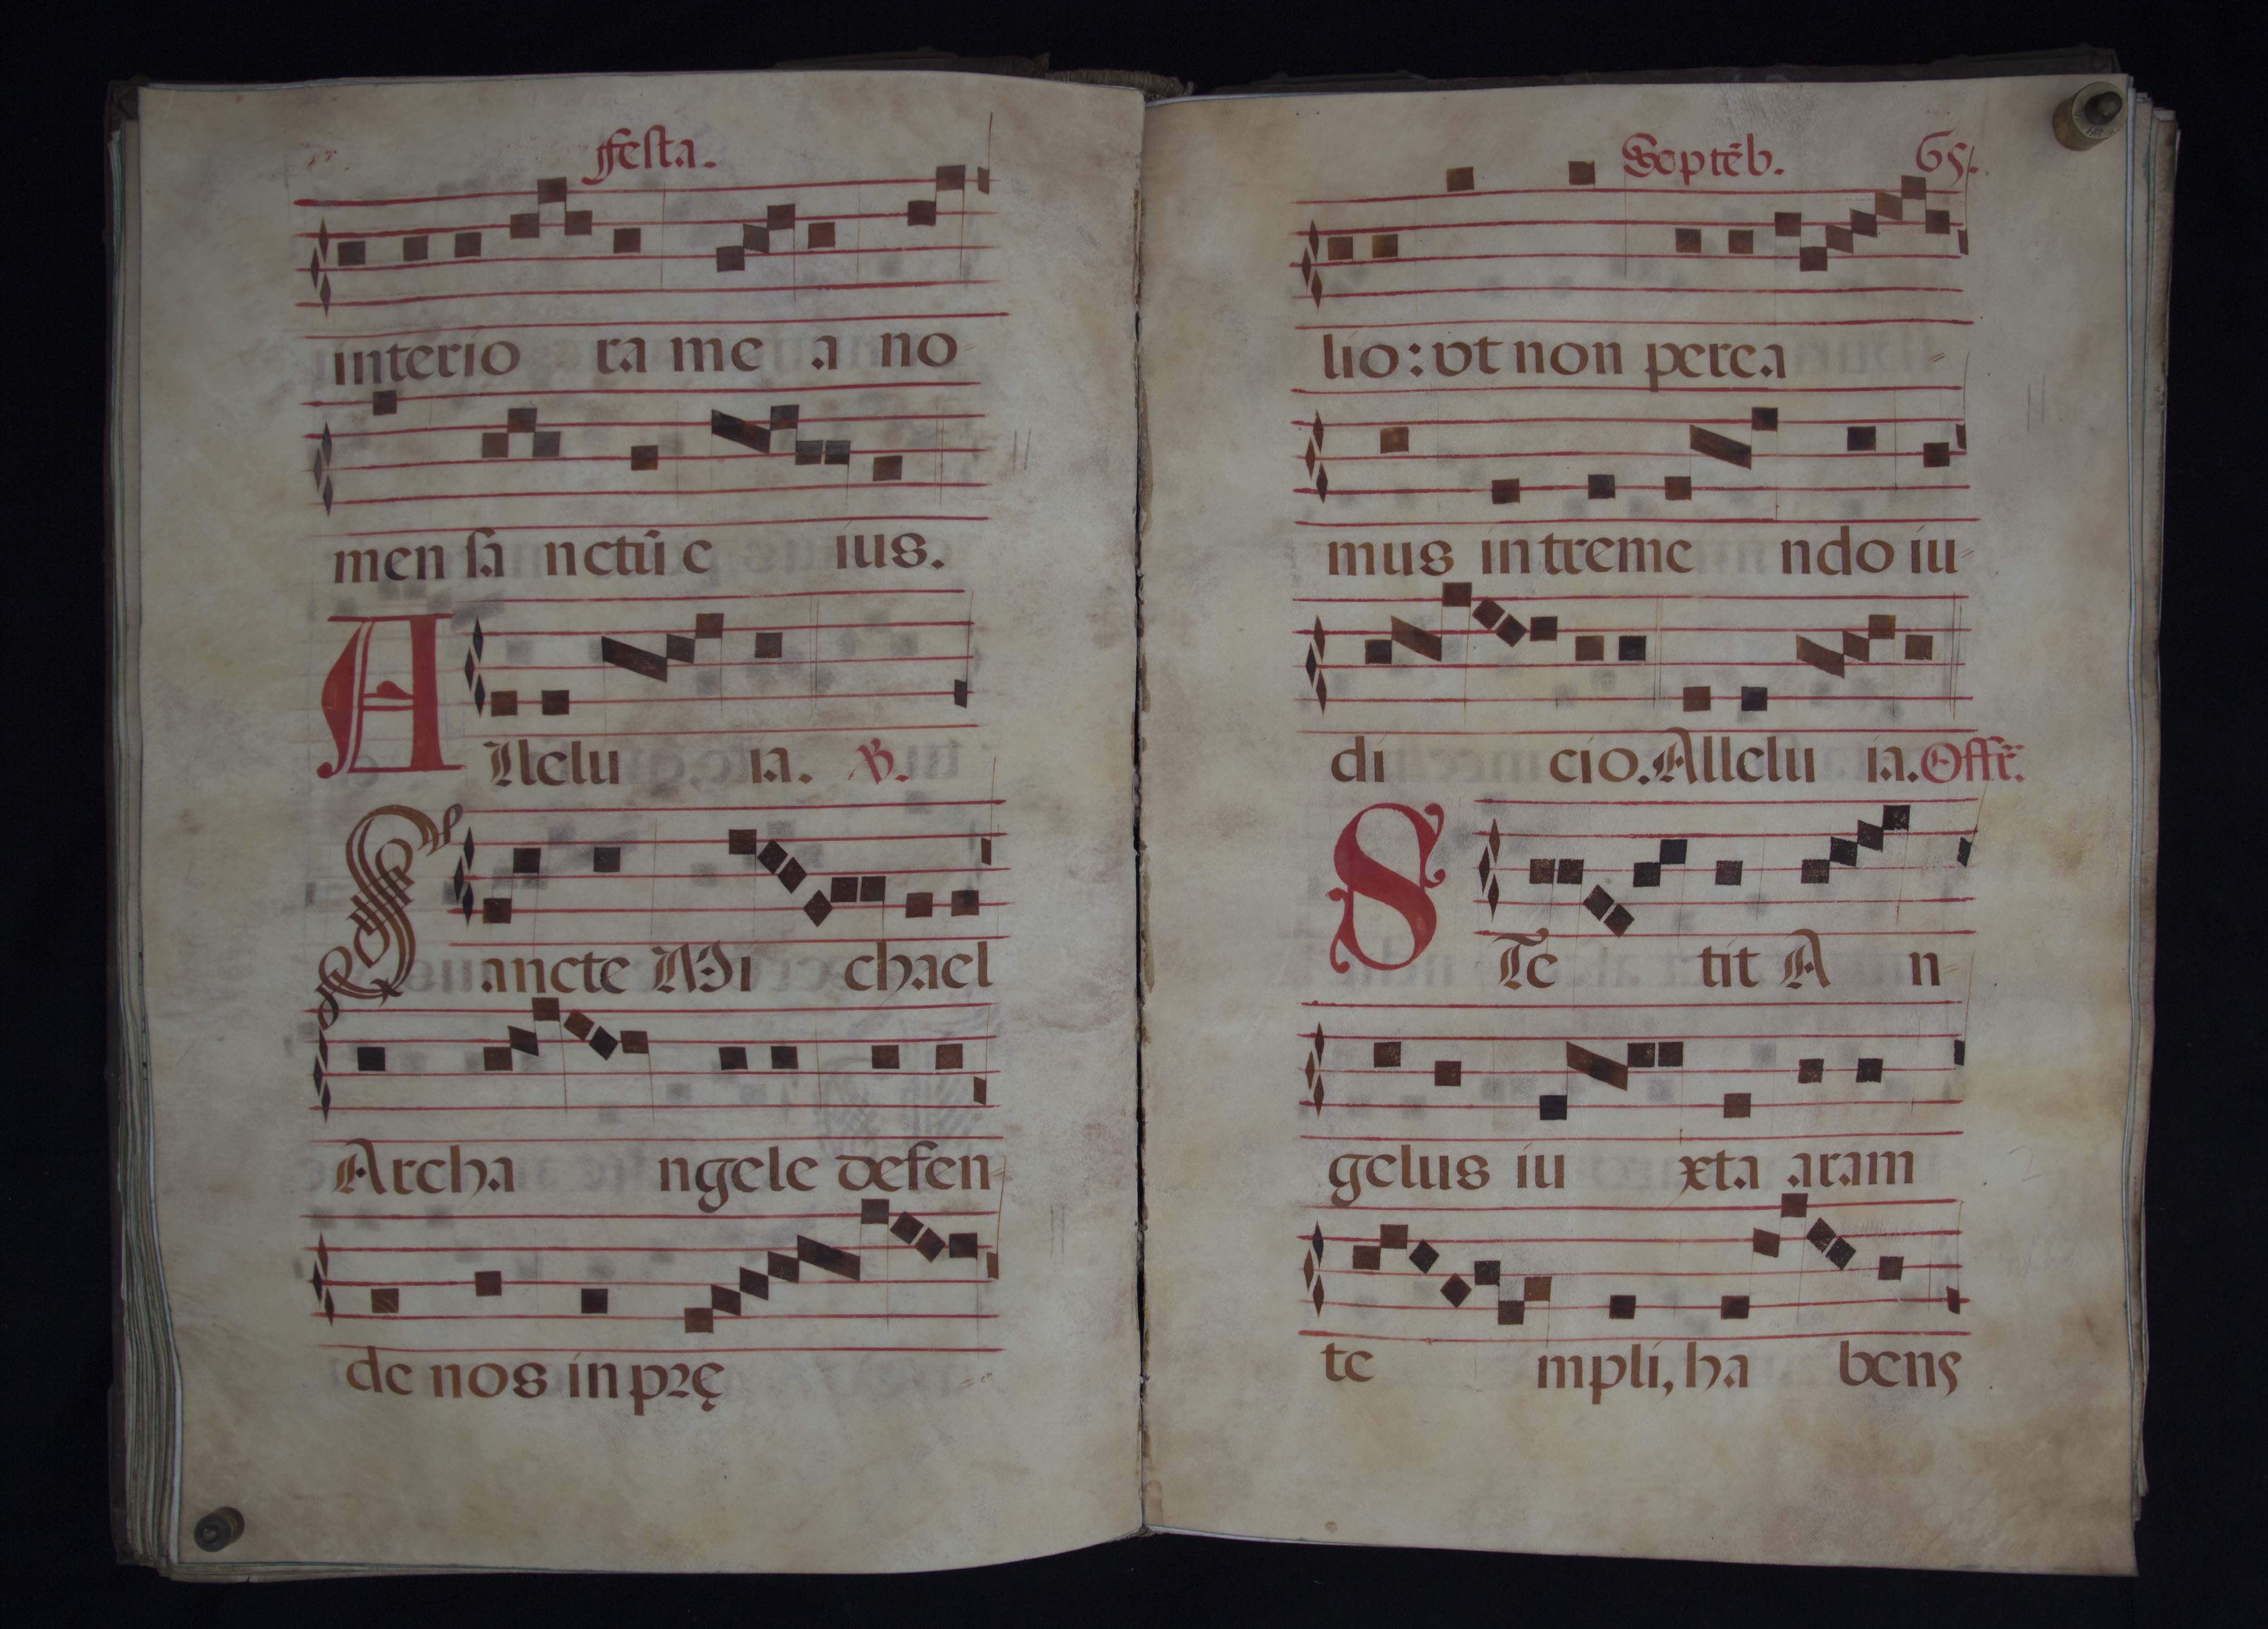 festa.
interio ra me a no
men sa nctũ e ius.
Allelu ia. ℣.
Sancte Mi chael
Archa ngele defen
de nos in prę
Septẽb. 65.
lio: vt non perea
mus in treme ndo iu
di cio. Allelu ia. Offr̃.
STe tit A n
gelus iu xta aram
te mpli, ha bens